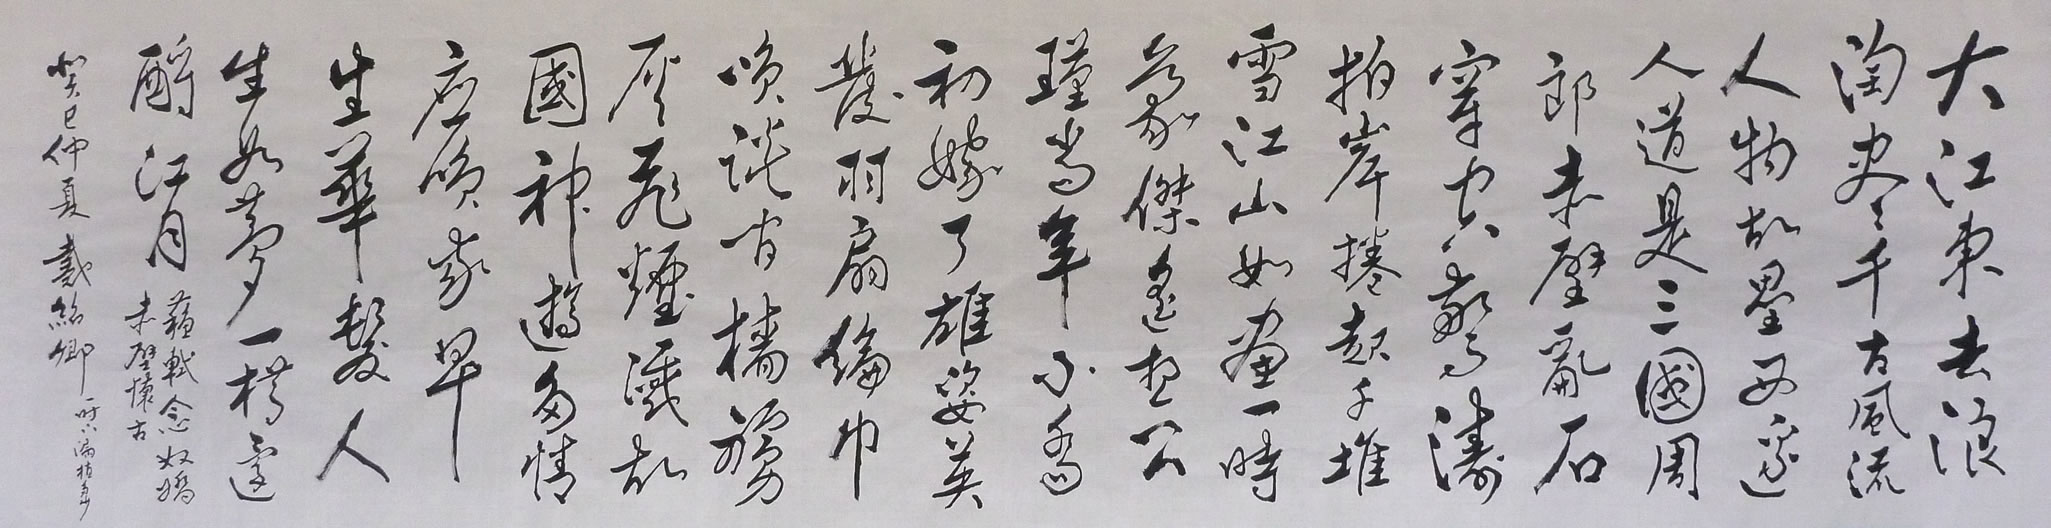 大江東去浪
淘盡千古風流
人物故壘西邊
人道是三國周
郎赤壁亂石
穿空驚濤
拍岸捲起千堆
雪江山如畫一時
豪傑遙想公
瑾當年小喬
初嫁了雄姿英
發羽扇綸巾
笑談間檣櫓
灰飛煙滅故
國神遊多情
應笑我早
生華髮人
生如夢一樽還
酹江月
蘇軾念奴嬌
赤壁懷古
癸巳仲夏戴紹卿